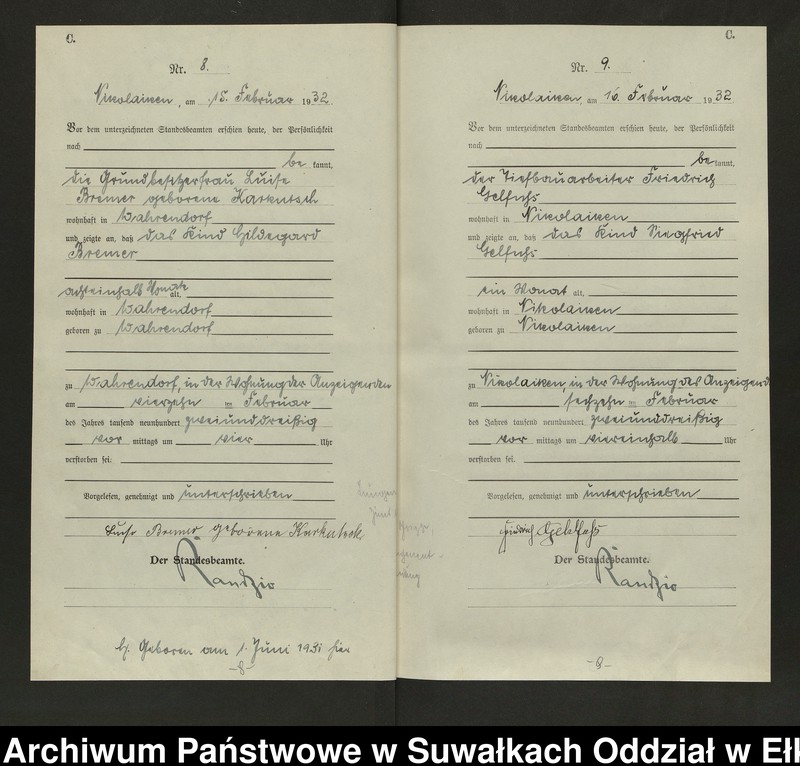 C.
Nr. 8.
Nikolaiken, am 15. Februar 1932
Vor dem unterzeichneten Standesbeamten erschien heute, der Persönlichkeit
nach
be kannt,
die Grundbesitzerfrau Luise
Bremer geborene Karkutsch
wohnhaft in Wahrendorf
und zeigte an, daß das Kind Hildegard
Bremer
achteinhalb Monate alt,
wohnhaft in Wahrendorf
geboren zu Wahrendorf
zu Wahrendorf, in der Wohnung der Anzeigenden
am vierzehn ten Februar
des Jahres tausend neunhundert zweiunddreißig
vor mittags um vier Uhr
verstorben sei.
Vorgelesen, genehmigt und unterschrieben
Luise Bremer geborene Karkutsch
Der Standesbeamte.
Randzio
Geboren am 1. Juni 1931 hier
-8-
C.
Nr. 9.
Nikolaiken, am 16. Februar 1932
Vor dem unterzeichneten Standesbeamten erschien heute, der Persönlichkeit
nach
be kannt,
der Tiefbauarbeiter Friedrich
Gelfuhs
wohnhaft in Nikolaiken
und zeigte an, daß das Kind Siegfried
Gelfuhs
ein Monat alt,
wohnhaft in Nikolaiken
geboren zu Nikolaiken
zu Nikolaiken, in der Wohnung des Anzeigend
am sechzehn ten Februar
des Jahres tausend neunhundert zweiunddreißig
vor mittags um viereinhalb Uhr
verstorben sei.
Vorgelesen, genehmigt und unterschrieben
Friedrich
Der Standesbeamte.
Randzio
Archiwum Państwowe w Suwałkach Oddział w Ełk